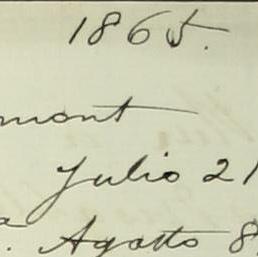 1865.
mont
Julio 21
a. Agosto 8